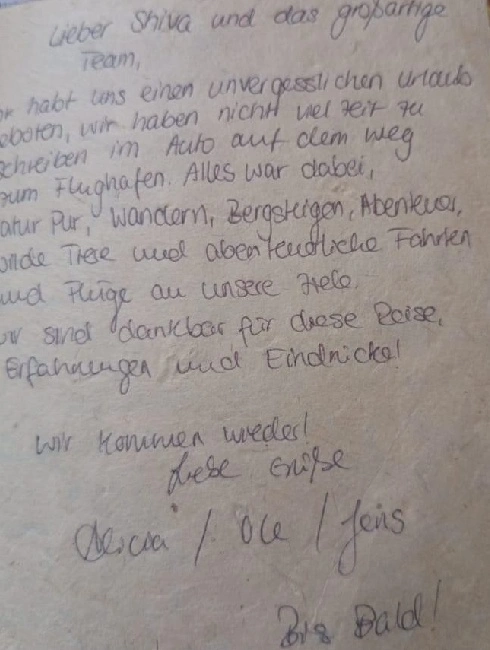 Lieber Shiva und das großartige
Team,
r habt uns einen unvergesslichen Urlaub
eboten, wir haben nicht viel Zeit zu
chreiben im Auto auf dem weg
zum Flughafen. Alles war dabei,
atur Pur, Wandern, Bergsteigen, Abenteuer,
ilde Tiere und abenteuerliche Fahrten
und Flüge an unsere Ziele.
ir sind dankbar für diese Reise,
Erfahrungen und Eindrücke!
Wir kommen wieder!
Liebe Grüße
/ Ole / Jens
Bis Bald!